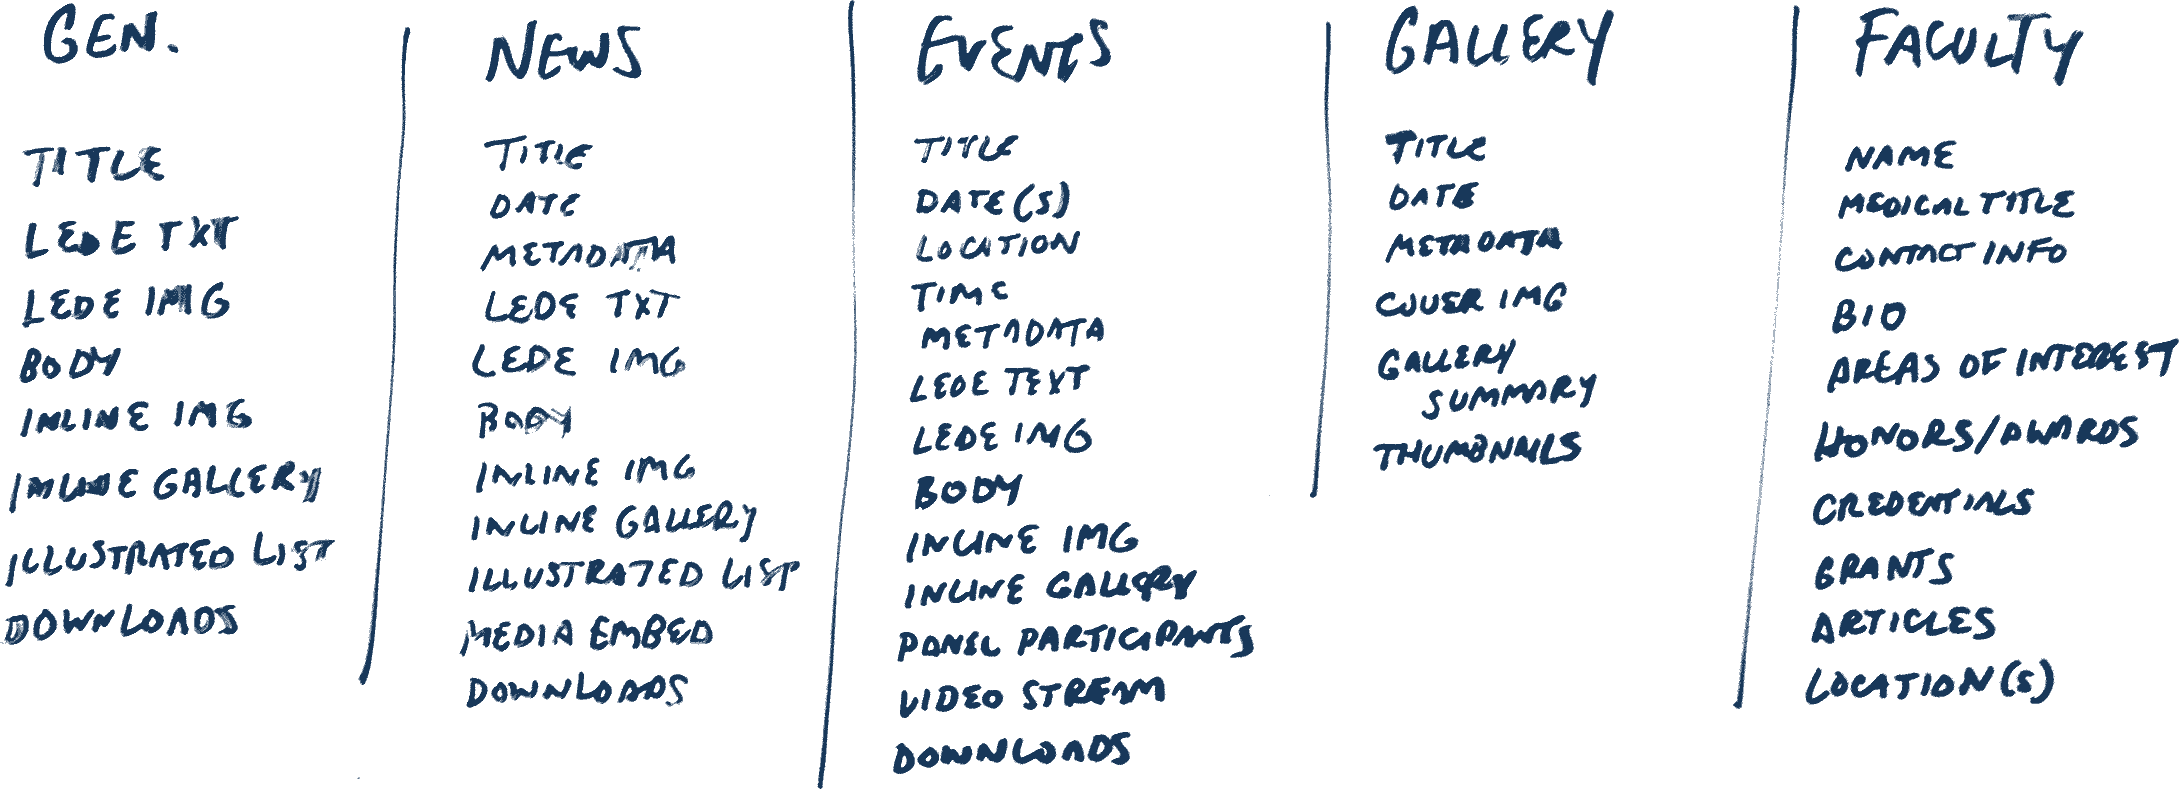 GEN.
TITLE
LEDE TXT
LEDE IMG
BODY
INLINE IMG
INLINE GALLERY
ILLUSTRATED LIST
DOWNLOADS
NEWS
TITLE
DATE
METADATA
LEDE TXT
LEDE IMG
BODY
INLINE IMG
INLINE GALLERY
ILLUSTRATED LIST
MEDIA EMBED
DOWNLOADS
EVENTS
TITLE
DATE(S)
LOCATION
TIME
METADATA
LEDE TEXT
LEDE IMG
BODY
INLINE IMG
INLINE GALLERY
PANEL PARTICIPANTS
VIDEO STREAM
DOWNLOADS
GALLERY
TITLE
DATE
METADATA
COVER IMG
GALLERY
SUMMARY
THUMBNAILS
FACULTY
NAME
MEDICAL TITLE
CONTACT INFO
BIO
AREAS OF INTEREST
HONORS/AWARDS
CREDENTIALS
GRANTS
ARTICLES
LOCATION(S)